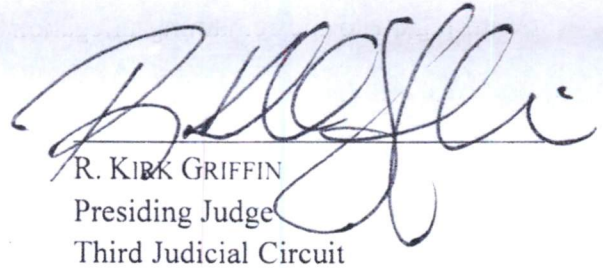 R. KIRK GRIFFIN
Presiding Judge
Third Judicial Circuit